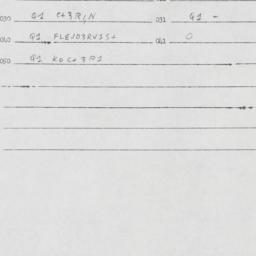 030 G1 C+3RIN 031 G1 -
040 G1 FLEJO3RVIS+ 041 0
050 G1 KOC+3PI